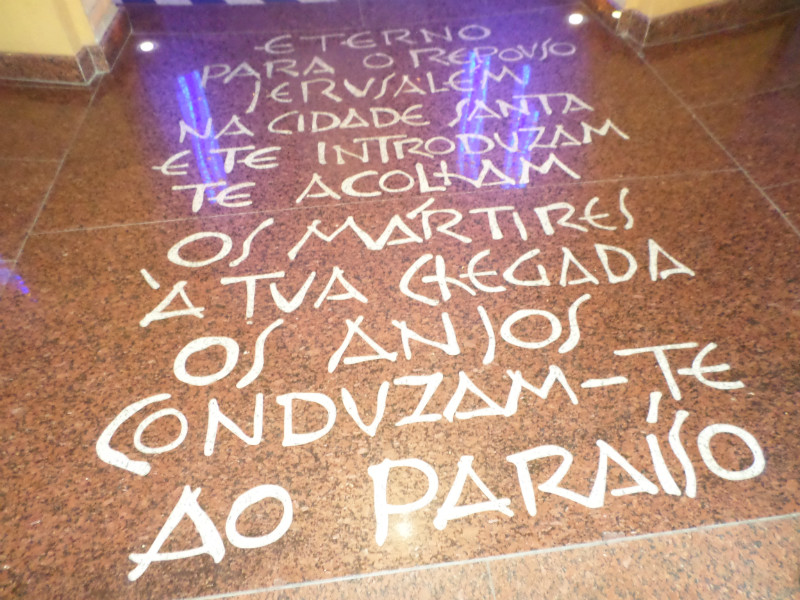 AO PARAÍSO
CONDUZAM-TE
OS ANJOS
À TUA CHEGADA
OS MÁRTIRES
TE ACOLHAM
E TE INTRODUZAM
NA CIDADE SANTA
JERUSALÉM
PARA O REPOUSO
ETERNO